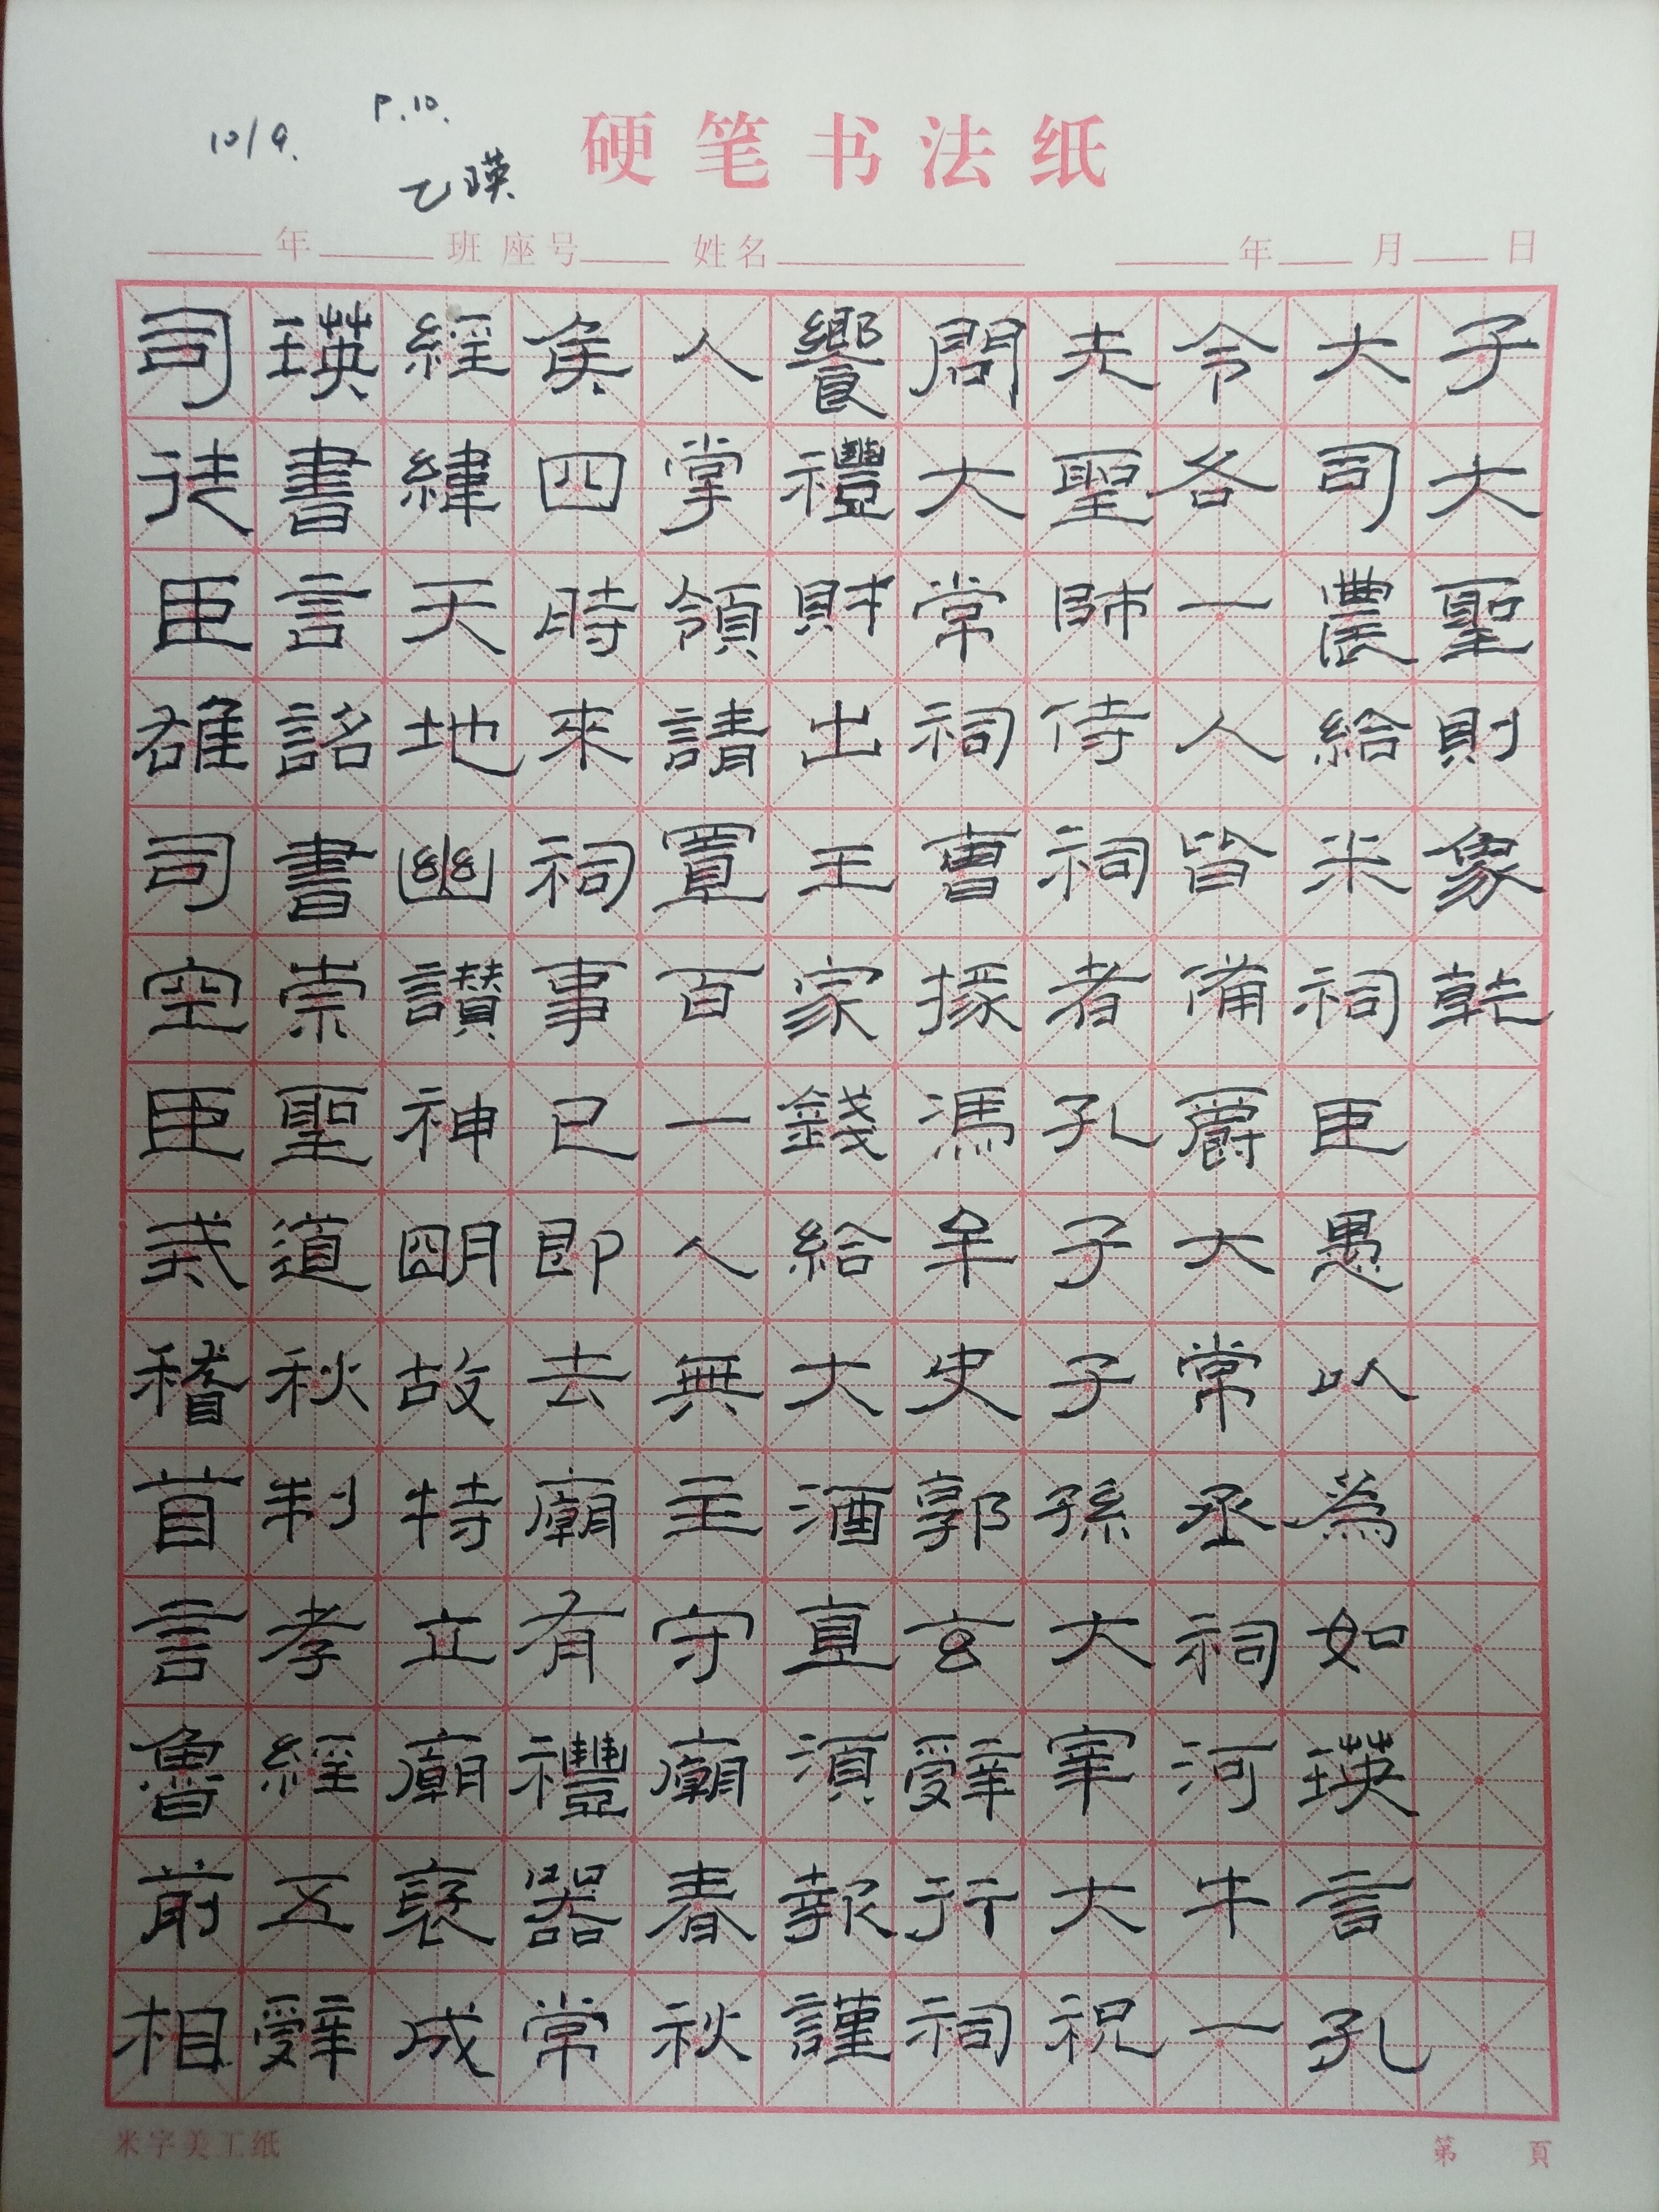 10/9.
P.10.
乙瑛
硬笔书法纸
年 班 座号 姓名 年 月 日
司徒臣雄司空臣戒稽首言魯前相
瑛書言詔書崇聖道秋制孝經五辭
經緯天地幽讚神明故特立廟褒成
侯四時來祠事已即去廟有禮器常
人掌領請置百一人無主守廟春秋
饗禮財出王家錢給大酒直須報謹
問大常祠曹掾馮牟史郭玄辭行祠
先聖師侍祠者孔子子孫大宰大祝
令各一人皆備爵大常丞祠河牛一
大司農給米祠臣愚以為如瑛言孔
子大聖則象乾
米字美工纸
第 頁